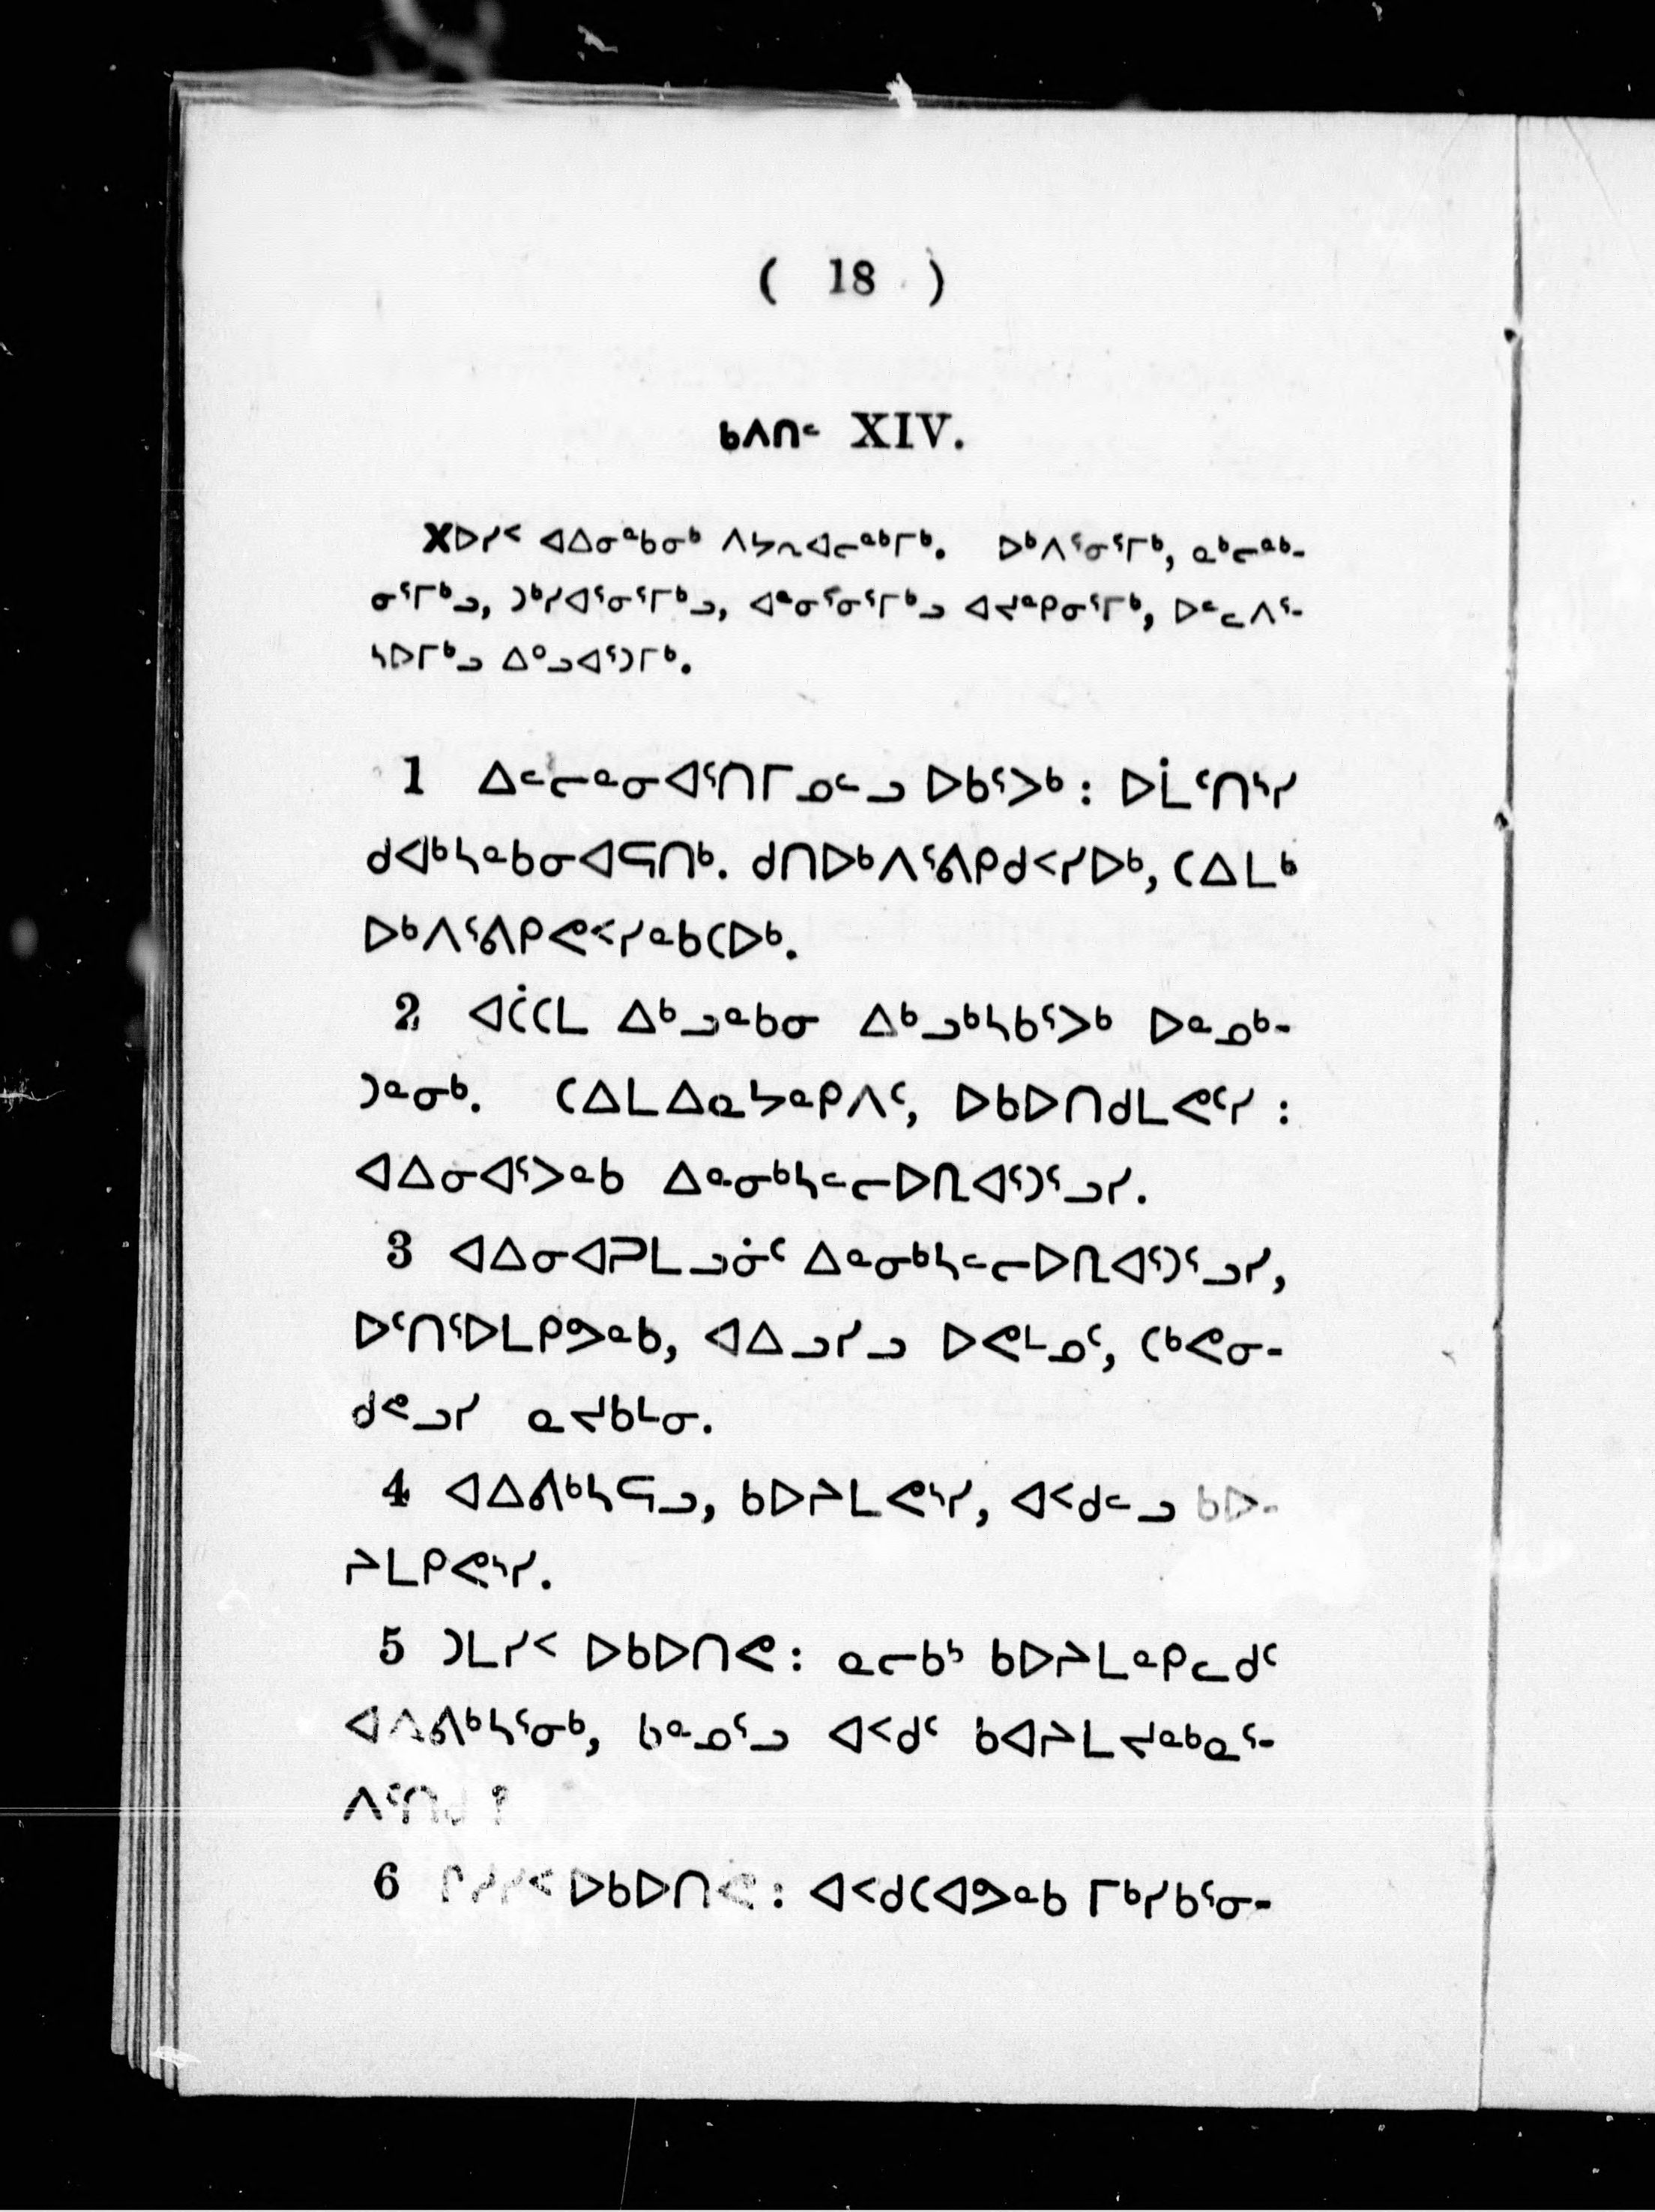 ( 18 )
ᑲᐱᑎᓪ XIV.
Xᐅᓯᑉ ᐊᐃᓂᓐᑲᓂᒃ ᐱᔭᕆᐊᓕᓐᒃᒥᒃ. ᐅᒃᐱᕐᓂᕐᒥᒃ, ᓇᒃᓕᓐᒃ-
ᓂᕐᒥᒃᓗ, ᑐᒃᓯᐊᕐᓂᕐᒥᒃᓗ, ᐊᓐᓂᕐᓂᕐᒥᒃᓗ ᐊᔪᓐᑭᓂᕐᒥᒃ, ᐅᓪᓚᐱᕐ-
ᓴᐅᒥᒃᓗ ᐃᐤᓗᐊᕐᑐᒥᒃ.
1 ᐃᓪᓕᓐᓂᐊᕐᑎᒥᓄᓪᓗ ᐅᑲᕐᐳᒃ : ᐅᒫᑦᑎᔅᓯ
ᑯᐊᒃᓴᓐᑲᓂᐊᕋᑎᒃ. ᑯᑎᐅᒃᐱᕐᕕᑭᑯᑉᓯᐅᒃ, ᑕᐃᒪᒃ
ᐅᒃᐱᕐᕕᑭᕙᑉᓯᓐᑲᑕᐅᒃ.
2 ᐊᑖᑕᒪ ᐃᒃᓗᓐᑲᓂ ᐃᒃᓗᒃᓴᑲᕐᐳᒃ ᐅᓐᓄᒃ-
ᑐᓐᓂᒃ. ᑕᐃᒪᐃᓇᔭᓐᑭᐱᑦ, ᐅᑲᐅᑎᑯᒪᕙᑦᓯ :
ᐊᐃᓂᐊᕐᐳᓐᑲ ᐃᓐᓂᒃᓴᓪᓕᐅᕈᐊᕐᑐᕐᓗᓯ.
3 ᐊᐃᓂᐊᑐᒪᓗᓃᑦ ᐃᓐᓂᒃᓴᓪᓕᐅᕈᐊᕐᑐᕐᓗᓯ,
ᐅᑦᑎᕐᐅᒪᑭᕗᓐᑲ, ᐊᐃᓗᓯᓗ ᐅᕙᒻᓄᑦ, ᑕᒃᕙᓂ-
ᑯᕝᓗᓯ ᓇᔪᑲᒻᓂ.
4 ᐊᐃᕕᒃᓴᕋᓗ, ᑲᐅᔨᒪᕙᔅᓯ, ᐊᑉᑯᓪᓗ ᑲᐅ-
ᔨᒪᑭᕙᔅᓯ.
5 ᑐᒪᓯᑉ ᐅᑲᐅᑎᕙ : ᓇᓕᑲᒃ ᑲᐅᔨᒪᓐᑭᓚᑯᑦ
ᐊᐃᕕᒃᓴᕐᓂᒃ, ᑲᓐᓄᕐᓗ ᐊᑉᑯᑦ ᑲᐊᔨᒪᔪᓐᒃᓇᕐ-
6 ᐅᑲᐅᑎᕙ : ᐊᑉᑯᑕᐊᕗᓐᑲ ᒥᒃᓯᑲᕐᓂ-